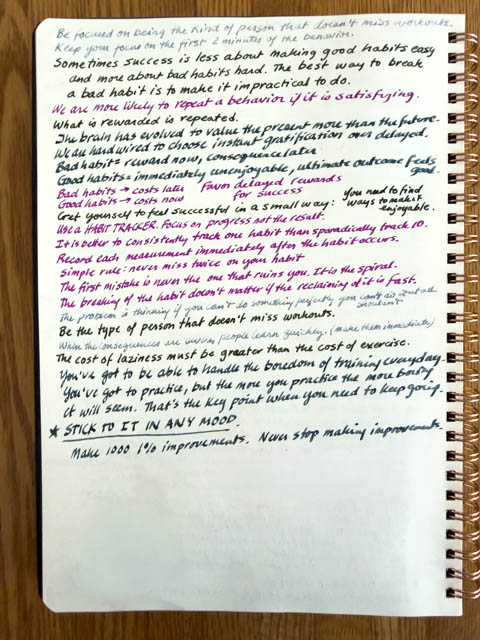 Be focused on being the kind of person that doesn't miss workouts.
Keep your focus on the first 2 minutes of the behavior.
Sometimes success is less about making good habits easy
and more about bad habits hard. The best way to break
a bad habit is to make it impractical to do.
We are more likely to repeat a behavior if it is satisfying.
What is rewarded is repeated.
The brain has evolved to value the present more than the future.
We are hard wired to choose instant gratification over delayed.
Bad habit = reward now, consequence later
Good habits = immediately unenjoyable, ultimate outcome feels good.
Bad habits → costs later Favor delayed rewards
Good habits → costs now for success
Get yourself to feel successful in a small way: you need to find ways to make it enjoyable.
USE a HABIT TRACKER. Focus on progress not the result.
It is better to consistently track one habit than sporadically track 10.
Record each measurement immediately after the habit occurs.
Simple rule: never miss twice on your habit
The first mistake is never the one that ruins you. It is the spiral.
The breaking of the habit doesn't matter if the reclaiming of it is fast.
The problem is thinking if you can't do something perfectly you shouldn't do it at all
Be the type of person that doesn't miss workouts.
When the consequences are severe people learn quickly. (make them immediate)
The cost of laziness must be greater than the cost of exercise.
You've got to be able to handle the boredom of training everyday.
You've got to practice, but the more you practice the more boring
it will seem. That's the key point when you need to keep going.
★ STICK TO IT IN ANY MOOD.
Make 1000 1% improvements. Never stop making improvements.